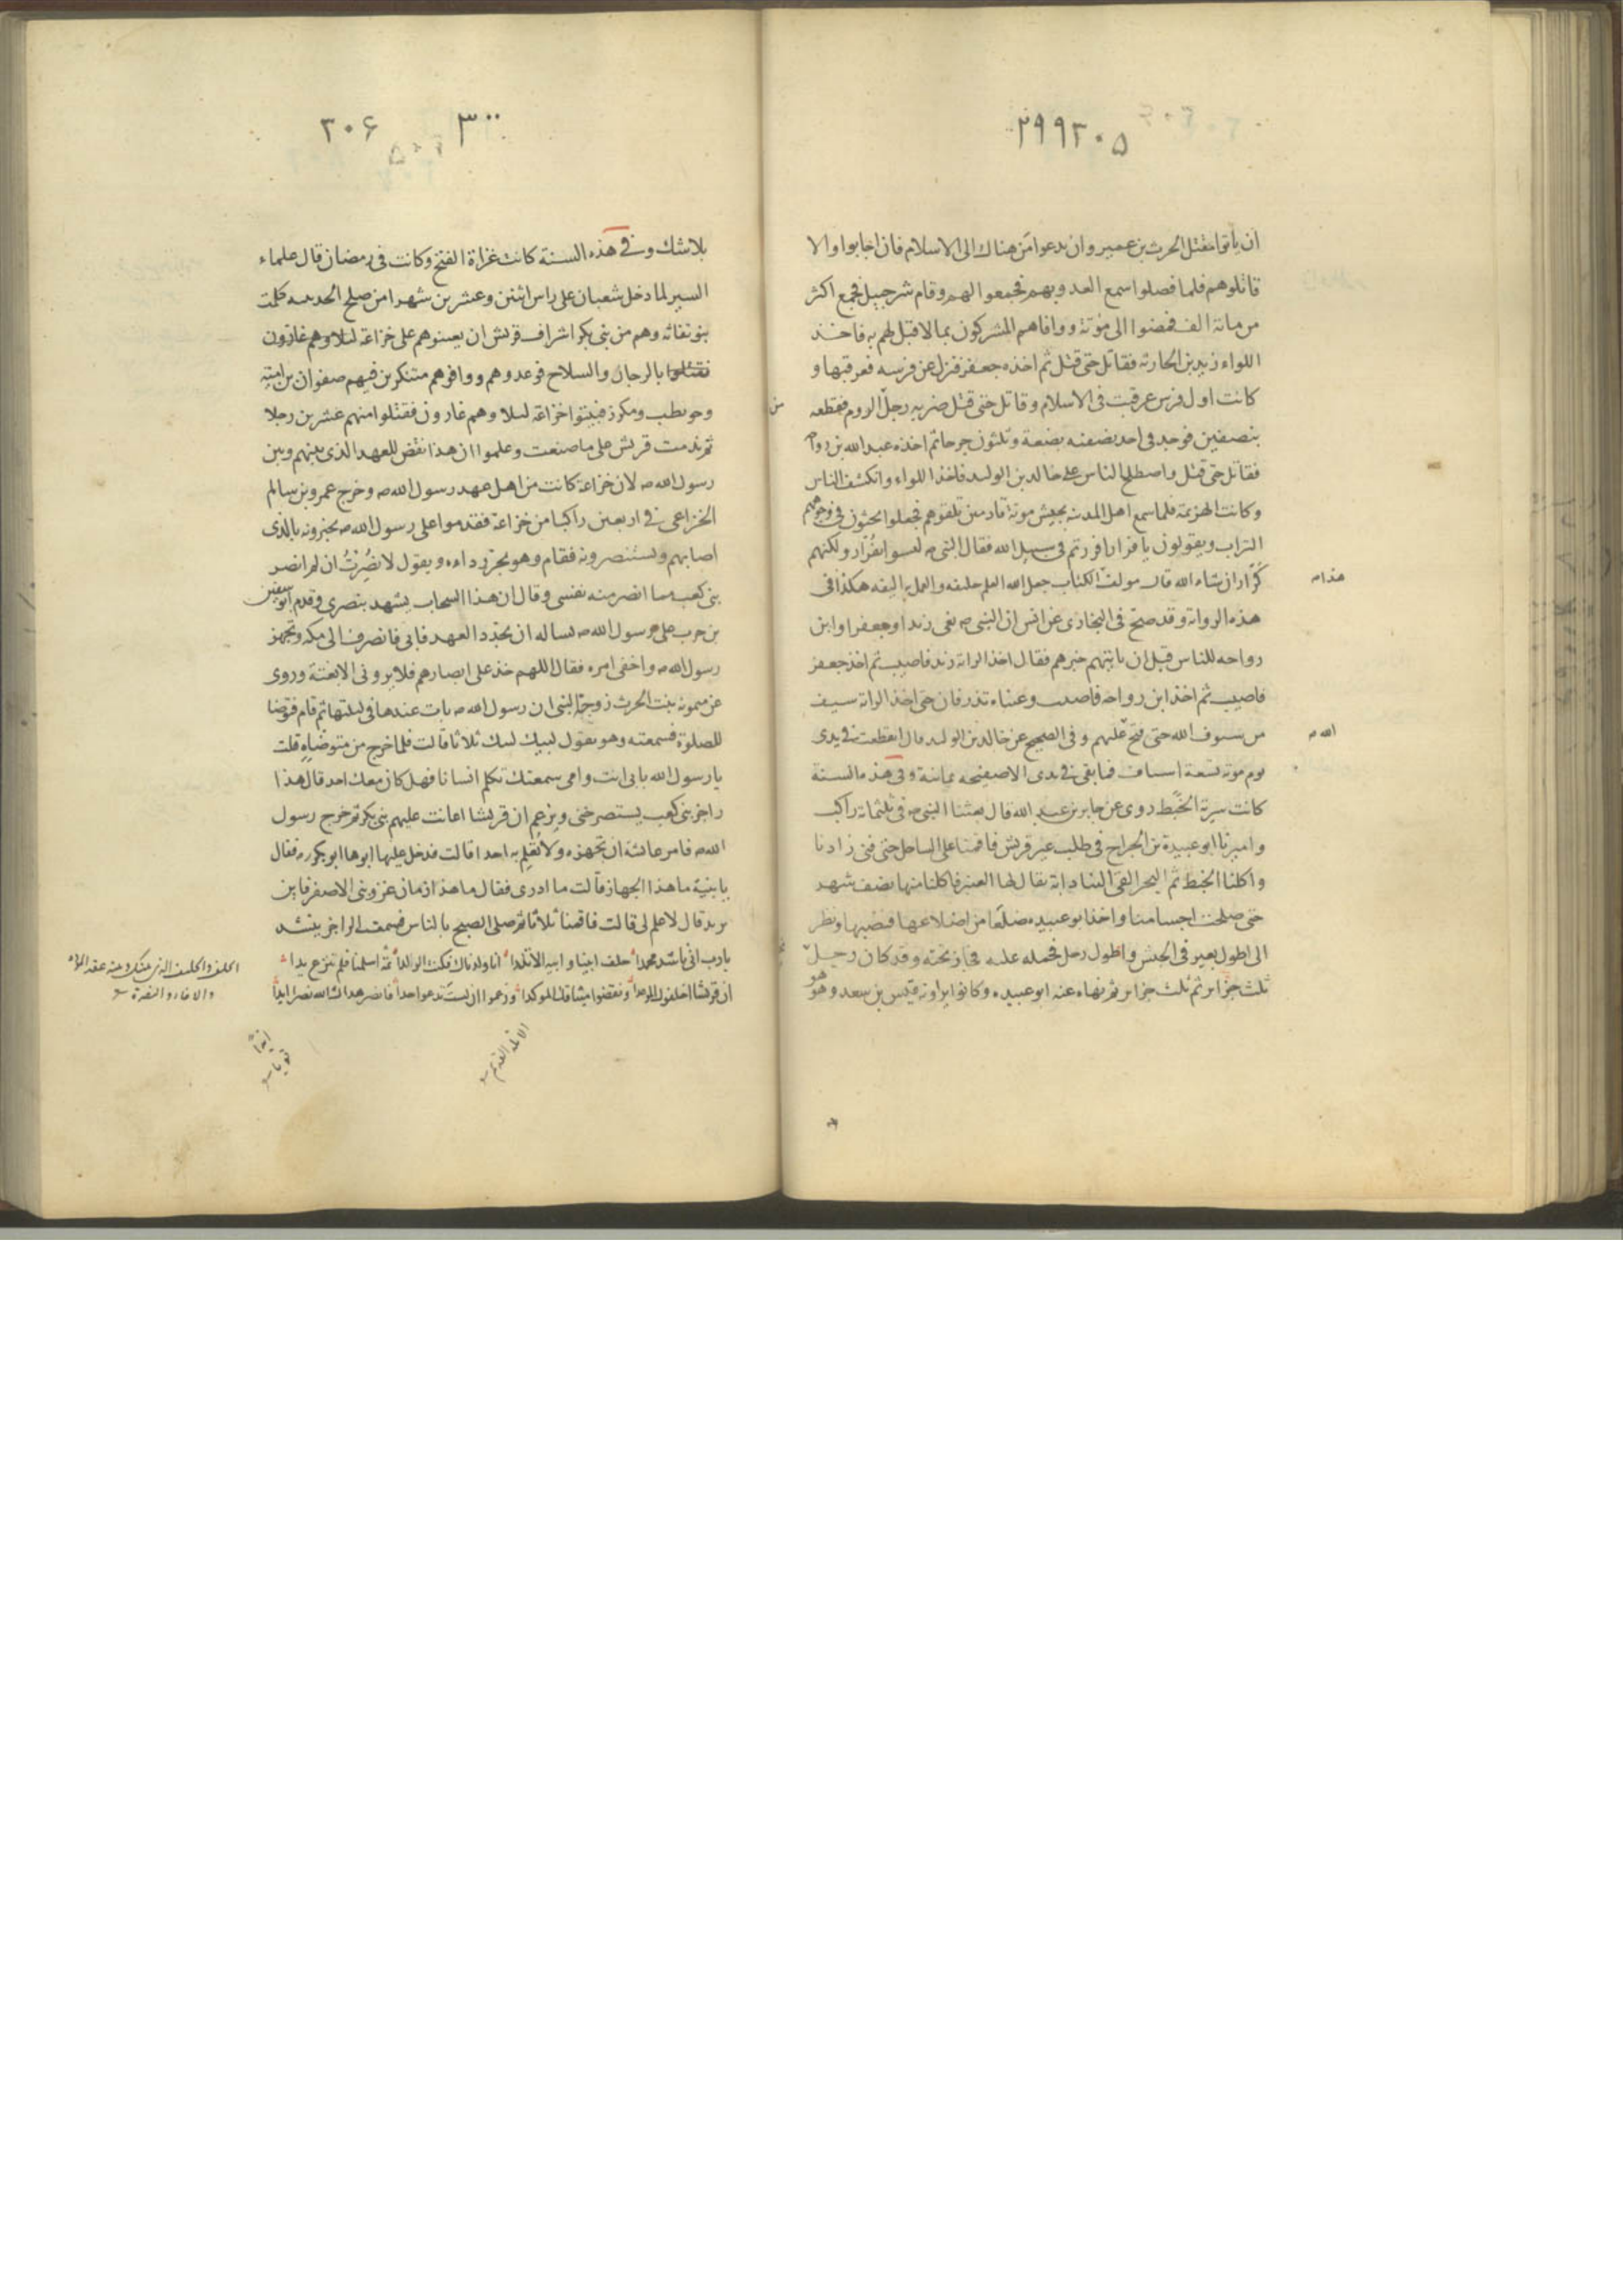 ۲۹۹ ۳۰۵
ان ياتوا مقتل الحرث بن عمير وان يدعوا من هناك الى الاسلام فان اجابوا والا
قاتلوهم فلما فصلوا سمع العدو بهم فجمعوا لهم وقام شرحبيل فجمع اكثر
من مائة الف فمضوا الى موتة ووافاهم المشركون بما لا قبل لهم به فاخذ
اللواء زيد بن الحارثة فقاتل حتى قتل ثم اخذه جعفر فنزل عن فرسه فعرقبها و
كانت اول فرس عرقبت فى الاسلام وقاتل حتى قتل ضربه رجل من الروم فقطعه
بنصفين فوجد فى احد نصفيه بضعة وثلثون جرحا ثم اخذه عبد الله بن رواحه
فقاتل حتى قتل واصطلح الناس على خالد بن الوليد فاخذ اللواء وانكشف الناس
وكانت الهزيمة فلما سمع اهل المدينة بجيش موتة قادمين تلقوهم فجعلوا يحثون فى وجوههم
التراب ويقولون يا فرار افررتم فى سبيل الله فقال النبى ص ليسوا بفرار ولكنهم
كرار ان شاء الله قال مولف الكتاب جعل الله العلم حليفه والعمل به اليفه هكذا فى
هذه الرواية وقد صح فى البخارى عن انس ان النبى ص نعى زيدا وجعفرا وابن
رواحه للناس قبل ان ياتيهم خبرهم فقال اخذ الراية زيد فاصيب ثم اخذ جعفر
فاصيب ثم اخذ ابن رواحه فاصيب وعيناه تذرفان حتى اخذ الراية سيف
من سيوف الله حتى فتح عليهم وفى الصحيح عن خالد بن الوليد قال انقطعت فى يدى
يوم موته تسعة اسياف فما بقى فى يدى الا صفيحه يمانية وفى هذه السنة
كانت سرية الخبط روى عن جابر بن عبد الله قال بعثنا النبى ص فى ثلثمائة راكب
واميرنا ابو عبيدة بن الجراح فى طلب عير قريش فاقمنا على الساحل حتى فنى زادنا
واكلنا الخبط ثم البحر القى الينا دابة يقال لها العنبر فاكلنا منها نصف شهر
حتى صلحت اجسامنا واخذ ابو عبيده ضلعا من اضلاعها فنصبها ونظر
الى اطول بعير فى الجيش واطول رجل فحمله عليه فجاز تحته وقد كان رجل
ثلث جزائر ثم ثلث جزائر ثم نهاه عنه ابو عبيده وكانوا يراونه قيس بن سعد وهو
هذا ص
الله ص
۳۰۰ ۳۰۶
بلا شك وفى هذه السنة كانت غزاة الفتح وكانت فى رمضان قال علماء
السير لما دخل شعبان على راس اثنين وعشرين شهرا من صلح الحديبيه كلمت
بنو نفاثه وهم من بنى بكر اشراف قريش ان يعينوهم على خزاعة ليلا وهم غارون
فقتلوا بالرجال والسلاح فوعدوهم ووافوهم متنكرين فيهم صفوان بن امية
وحويطب ومكرز فبيتوا خزاعة ليلا وهم غارون فقتلوا منهم عشرين رجلا
ثم ندمت قريش على ما صنعت وعلموا ان هذا نقض للعهد الذى بينهم وبين
رسول الله ص لان خزاعة كانت من اهل عهد رسول الله ص وخرج عمرو بن سالم
الخزاعى فى اربعين راكبا من خزاعة فقدموا على رسول الله ص يخبرونه بالذى
اصابهم ويستنصرونه فقام وهو يجر رداءه ويقول لا نصرت ان لم انصر
بنى كعب مما انصر منه نفسى وقال ان هذا السحاب يشهد بنصرى وقدم ابو سفين
بن حرب على رسول الله ص يساله ان يجدد العهد فابى فانصرف الى مكه وتجهز
رسول الله ص واخفى امره فقال اللهم خذ على ابصارهم فلا يرونى الا بغتة وروى
عن ميمونة بنت الحرث زوجة النبى ان رسول الله ص بات عندها فى ليلتها ثم قام فتوضا
للصلوة فسمعته وهو يقول لبيك لبيك ثلاثا قالت فلما خرج من متوضاه قلت
يا رسول الله بابى انت وامى سمعتك تكلم انسانا فهل كان معك احد قال هذا
راجز بنى كعب يستصرخنى ويزعم ان قريشا اعانت عليهم بنى بكر ثم خرج رسول
الله ص فامر عائشه ان تجهزه ولا تعلم به احدا قالت فدخل عليها ابوها ابو بكر فقال
يا بنية ما هذا الجهاز قالت ما ادرى فقال ما هذا زمان غزو بنى الاصفر فاين
يريد قال لا علم لى قالت فاقمنا ثلاثا ثم صلى الصبح بالناس فسمعت الراجز ينشد
يا رب انى ناشد محمدا حلف ابينا وابيه الاتلدا انا ولدناك فكنت الولدا ثمة اسلمنا فلم ننزع يدا
ان قريشا اخلفوك الموعدا ونقضوا ميثاقك الموكدا وزعموا ان لست تدعو احدا فانصر هداك الله نصرا ابدا